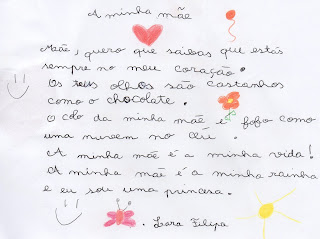 A minha mãe
Mãe, quero que saibas que estás
sempre no meu coração.
Os teus olhos são castanhos
como o chocolate.
O colo da minha mãe é fofo como
uma nuvem no céu.
A minha mãe é a minha vida!
A minha mãe é a minha rainha
e eu sou uma princesa.
Lara Filipa